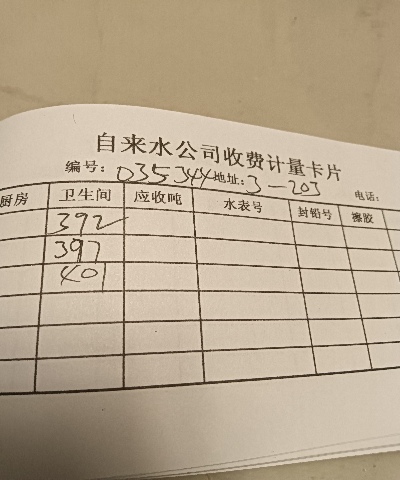 自来水公司收费计量卡片
编号: 035344 地址: 3-203 电话:
厨房 卫生间 应收吨 水表号 封铅号 擦胶
392
397
401